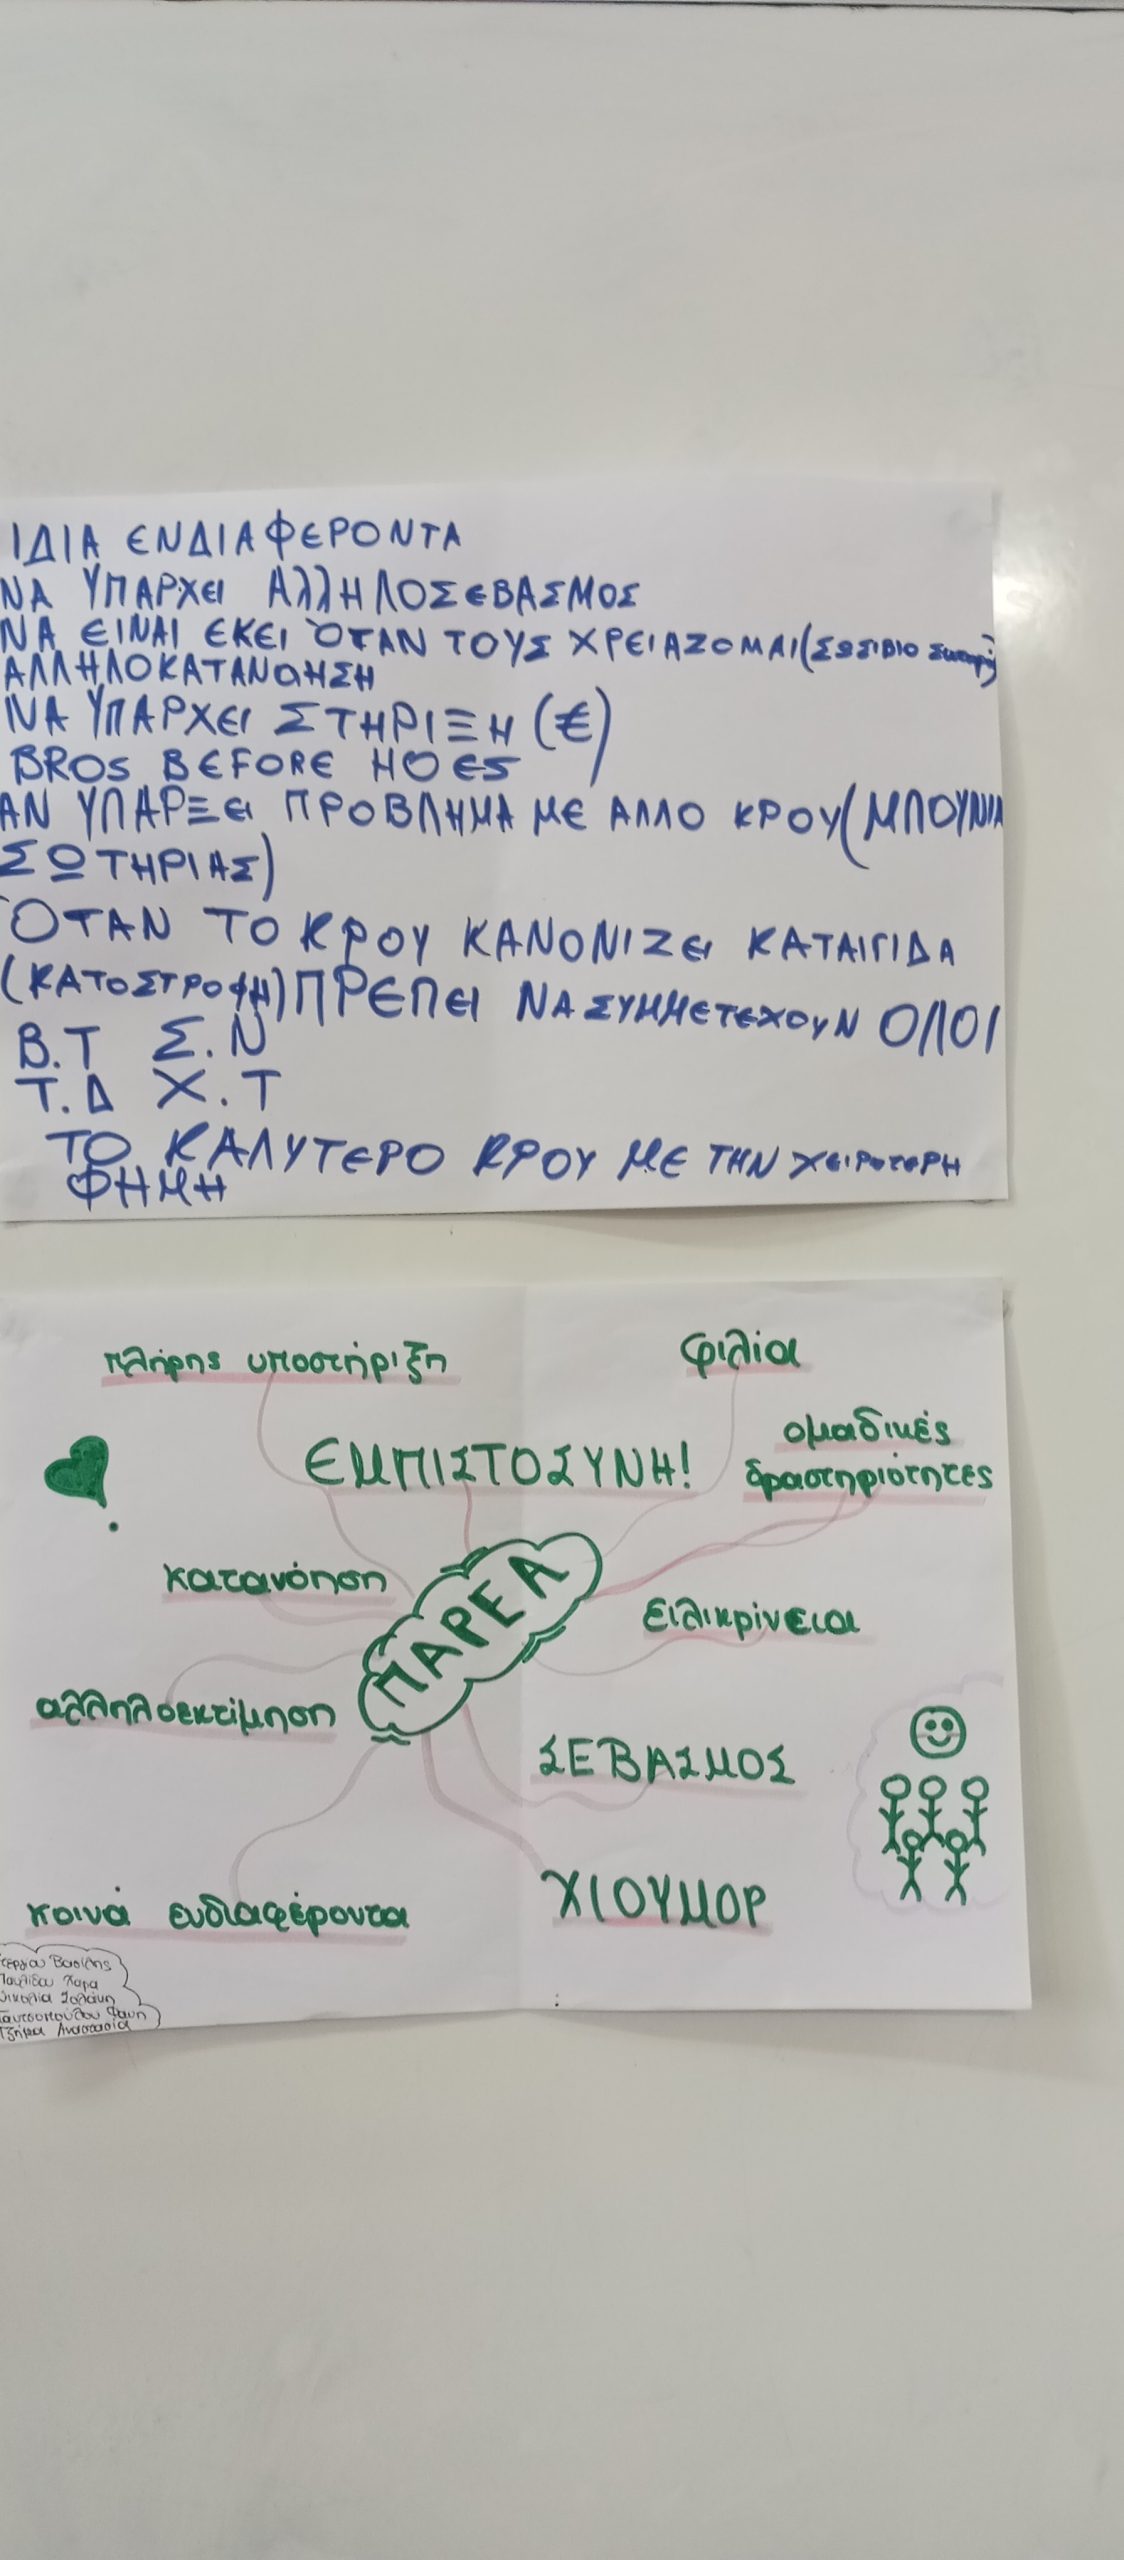 ΙΔΙΑ ΕΝΔΙΑΦΕΡΟΝΤΑ
ΝΑ ΥΠΑΡΧΕΙ ΑΛΛΗΛΟΣΕΒΑΣΜΟΣ
ΝΑ ΕΙΝΑΙ ΕΚΕΙ ΌΤΑΝ ΤΟΥΣ ΧΡΕΙΑΖΟΜΑΙ (ΣΩΣΙΒΙΟ
ΑΛΛΗΛΟΚΑΤΑΝΟΗΣΗ
ΝΑ ΥΠΑΡΧΕΙ ΣΤΗΡΙΞΗ (€)
BROS BEFORE HOES
ΑΝ ΥΠΑΡΞΕΙ ΠΡΟΒΛΗΜΑ ΜΕ ΑΛΛΟ ΚΡΟΥ (ΜΠΟΥΝΙΑ
ΣΩΤΗΡΙΑΣ)
ΌΤΑΝ ΤΟ ΚΡΟΥ ΚΑΝΟΝΙΖΕΙ ΚΑΤΑΙΓΙΔΑ
(ΚΑΤΟΣΤΡΟΦΗ) ΠΡΕΠΕΙ ΝΑ ΣΥΜΜΕΤΕΧΟΥΝ ΟΛΟΙ
Β.Τ Σ.Ν
Τ.Δ Χ.Τ
ΤΟ ΚΑΛΥΤΕΡΟ ΚΡΟΥ ΜΕ ΤΗΝ ΧΕΙΡΟΤΕΡΗ
ΦΗΜΗ
πλήρης υποστήριξη
φιλία
ΕΜΠΙΣΤΟΣΥΝΗ!
ομαδικές
δραστηριότητες
κατανόηση
ΠΑΡΕΑ
ειλικρίνεια
αλληλοεκτίμηση
ΣΕΒΑΣΜΟΣ
ΧΙΟΥΜΟΡ
κοινά ενδιαφέροντα
Βασίλης
Χαρά
Φανή
Τζήμα Αναστασία